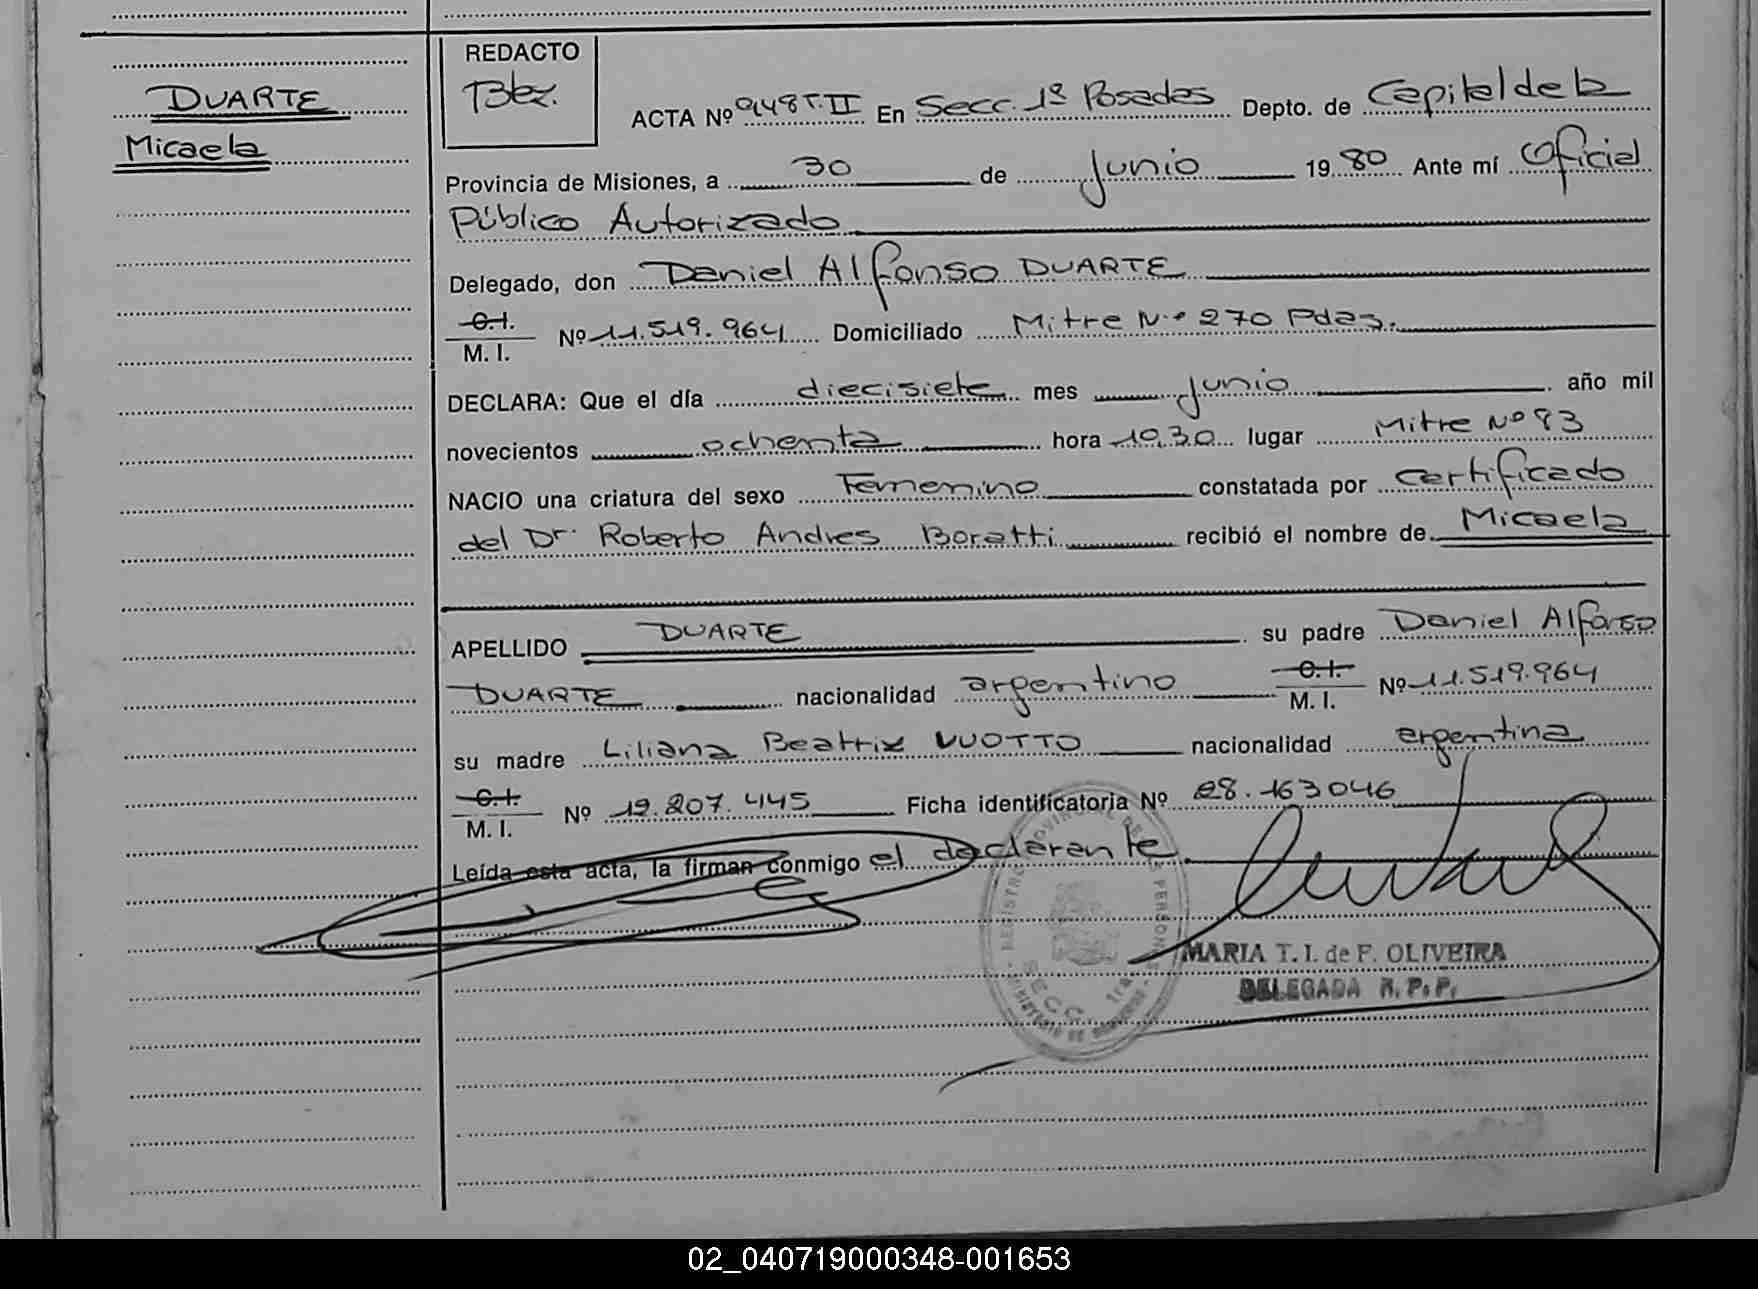 DUARTE
Micaela
REDACTO
Bez.
ACTA Nº 948 T. II En Secc. 1º Posadas Depto. de Capital de la
Provincia de Misiones, a 30 de Junio 1980 Ante mí Oficial
Público Autorizado
Delegado, don Daniel Alfonso DUARTE
C.I.
M. I. Nº 11.519.964 Domiciliado Mitre Nº 270 Pdas.
DECLARA: Que el día diecisiete mes Junio año mil
novecientos ochenta hora 10,30 lugar Mitre Nº 83
NACIO una criatura del sexo Femenino constatada por certificado
del Dr. Roberto Andres Boratti recibió el nombre de Micaela
APELLIDO DUARTE su padre Daniel Alfonso
DUARTE nacionalidad argentino C.I. M. I. Nº 11.519.964
su madre Liliana Beatriz VUOTTO nacionalidad argentina
C.I.
M. I. Nº 12.207.445 Ficha identificatoria Nº 28.163046
Leída esta acta, la firman conmigo el declarante
MARIA T. I. de F. OLIVEIRA
DELEGADA R. P. P.
SECC. 1ra
02_040719000348-001653